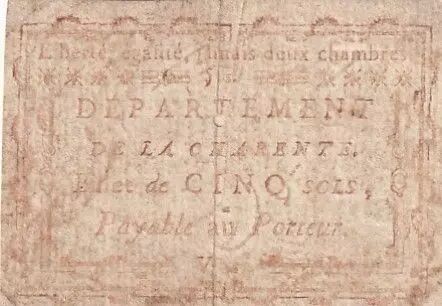 Liberté, égalité, jamais deux chambres
5 s.
DÉPARTEMENT
DE LA CHARENTE.
Billet de CINQ sols,
Payable au Porteur.